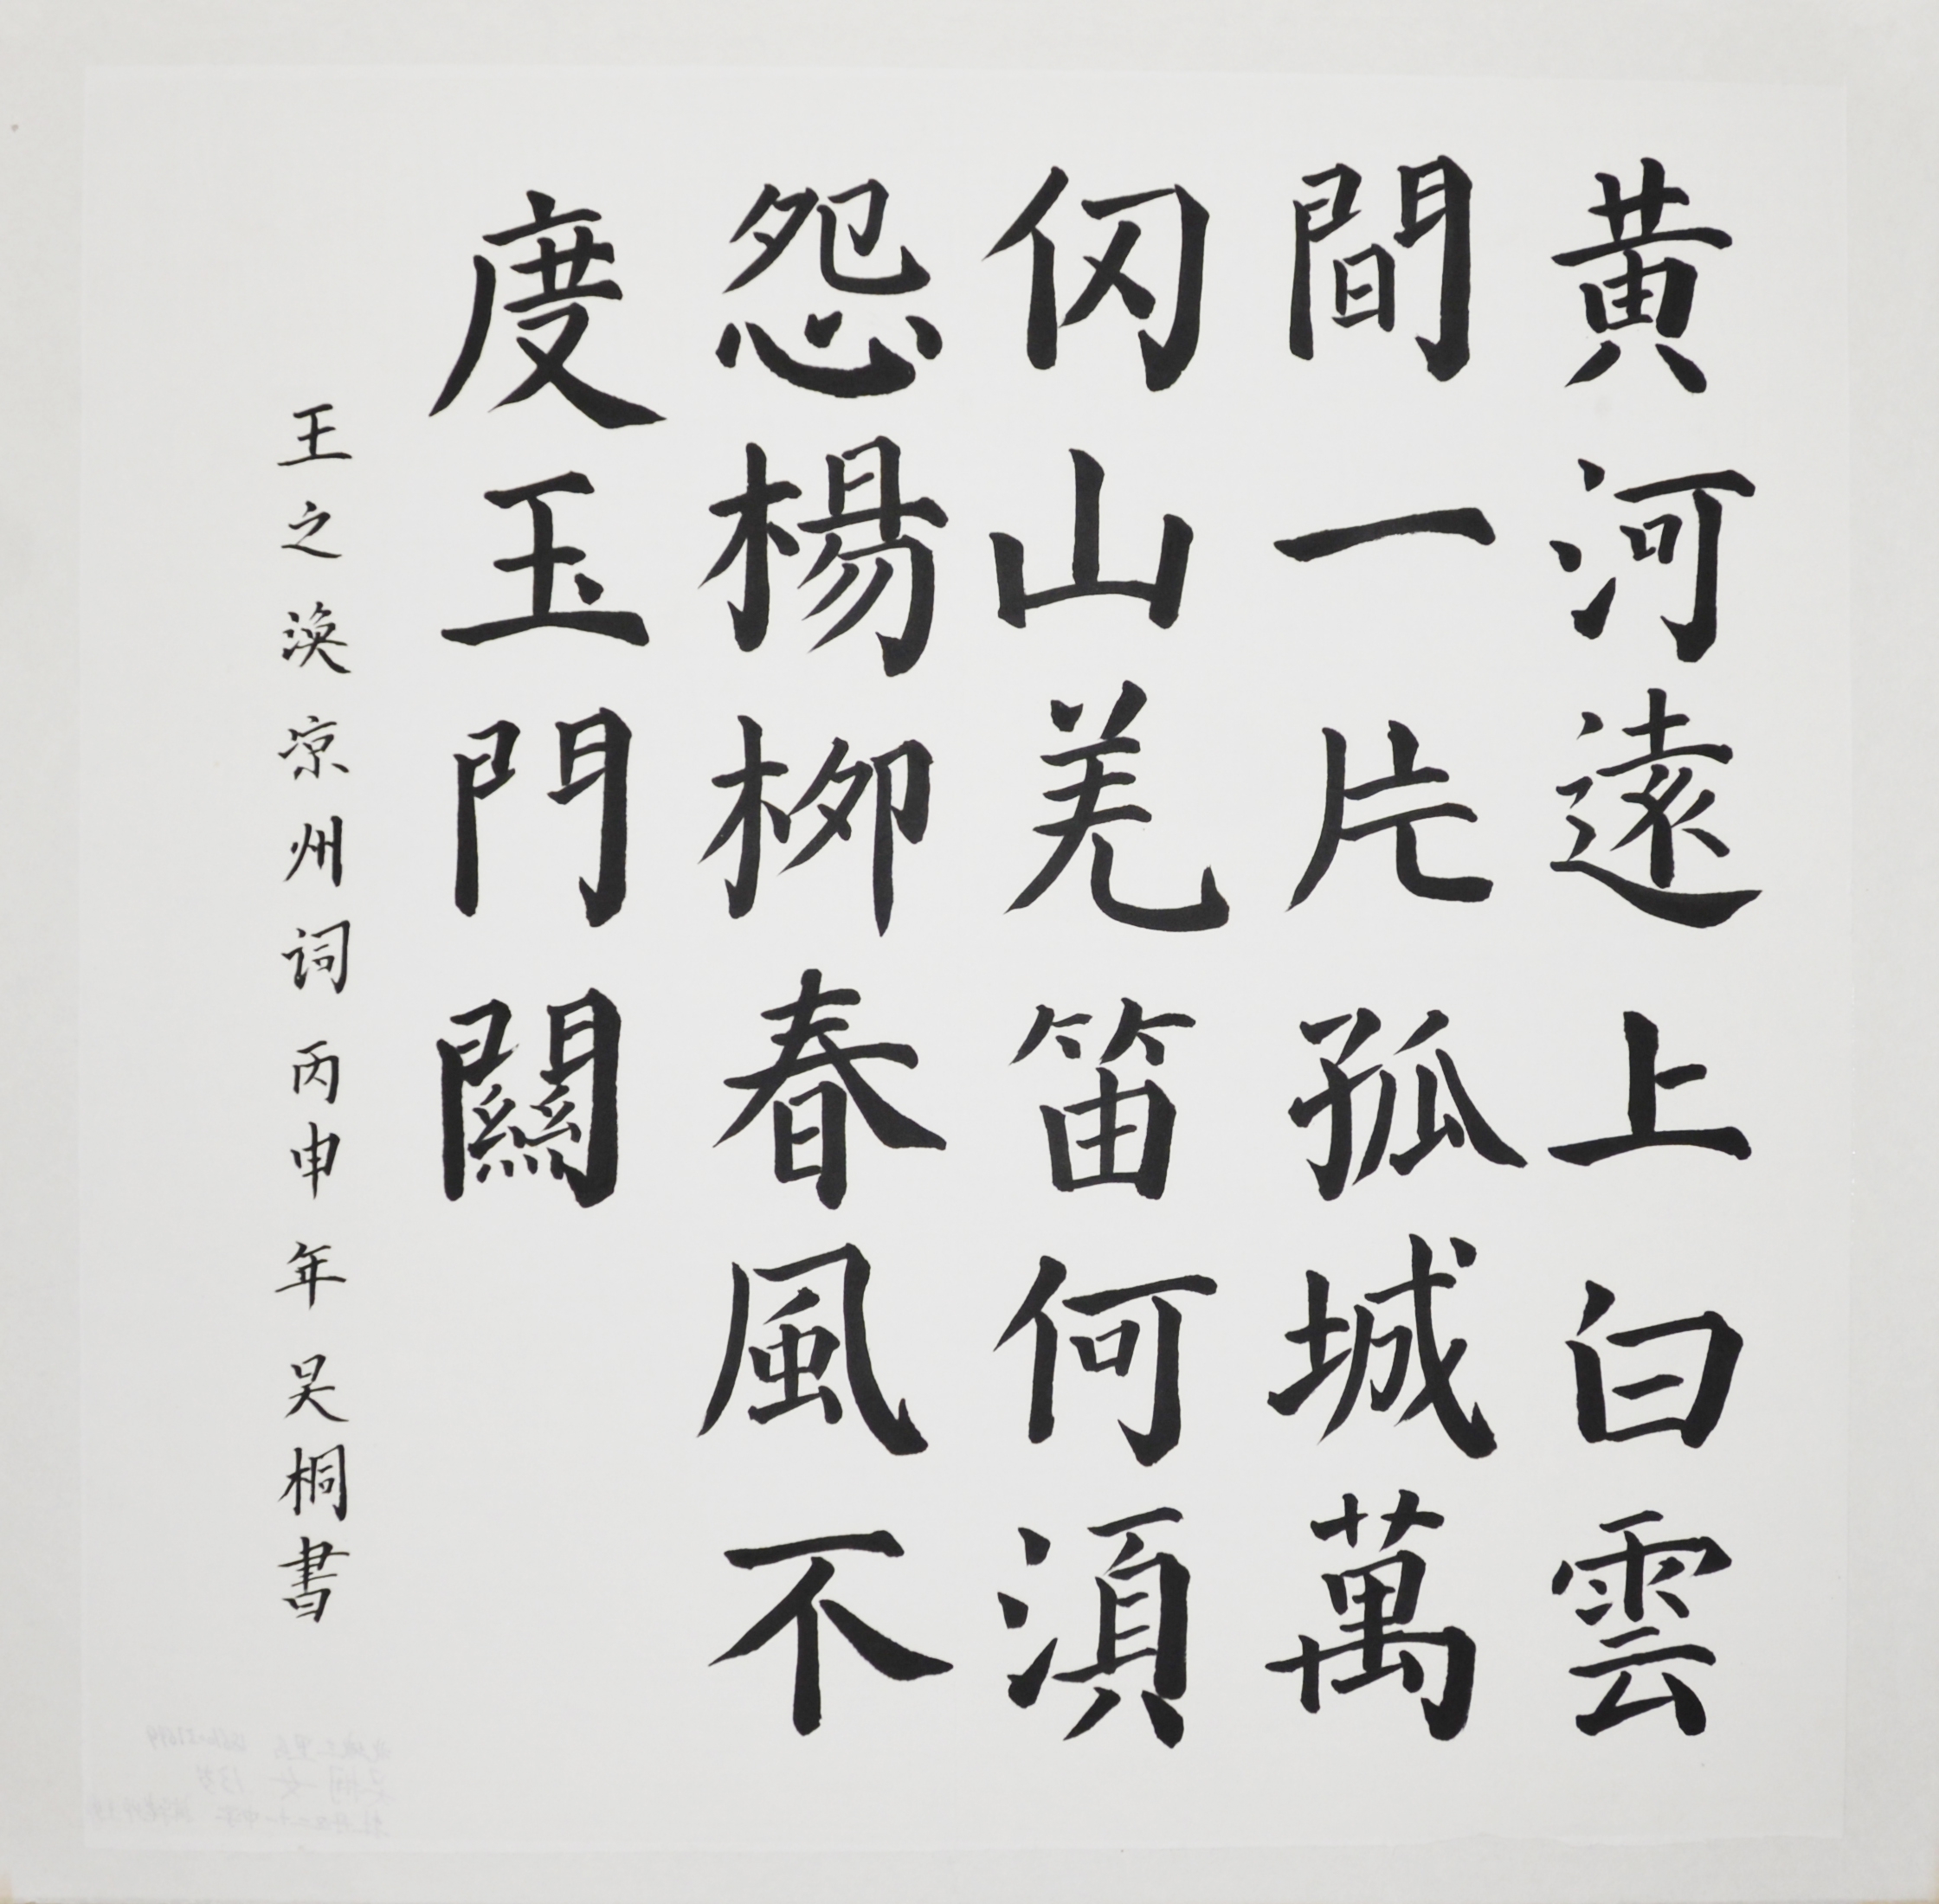 黄河遠上白雲
間一片孤城萬
仞山羌笛何須
怨楊柳春風不
度玉門關
王之渙凉州词丙申年吴桐書